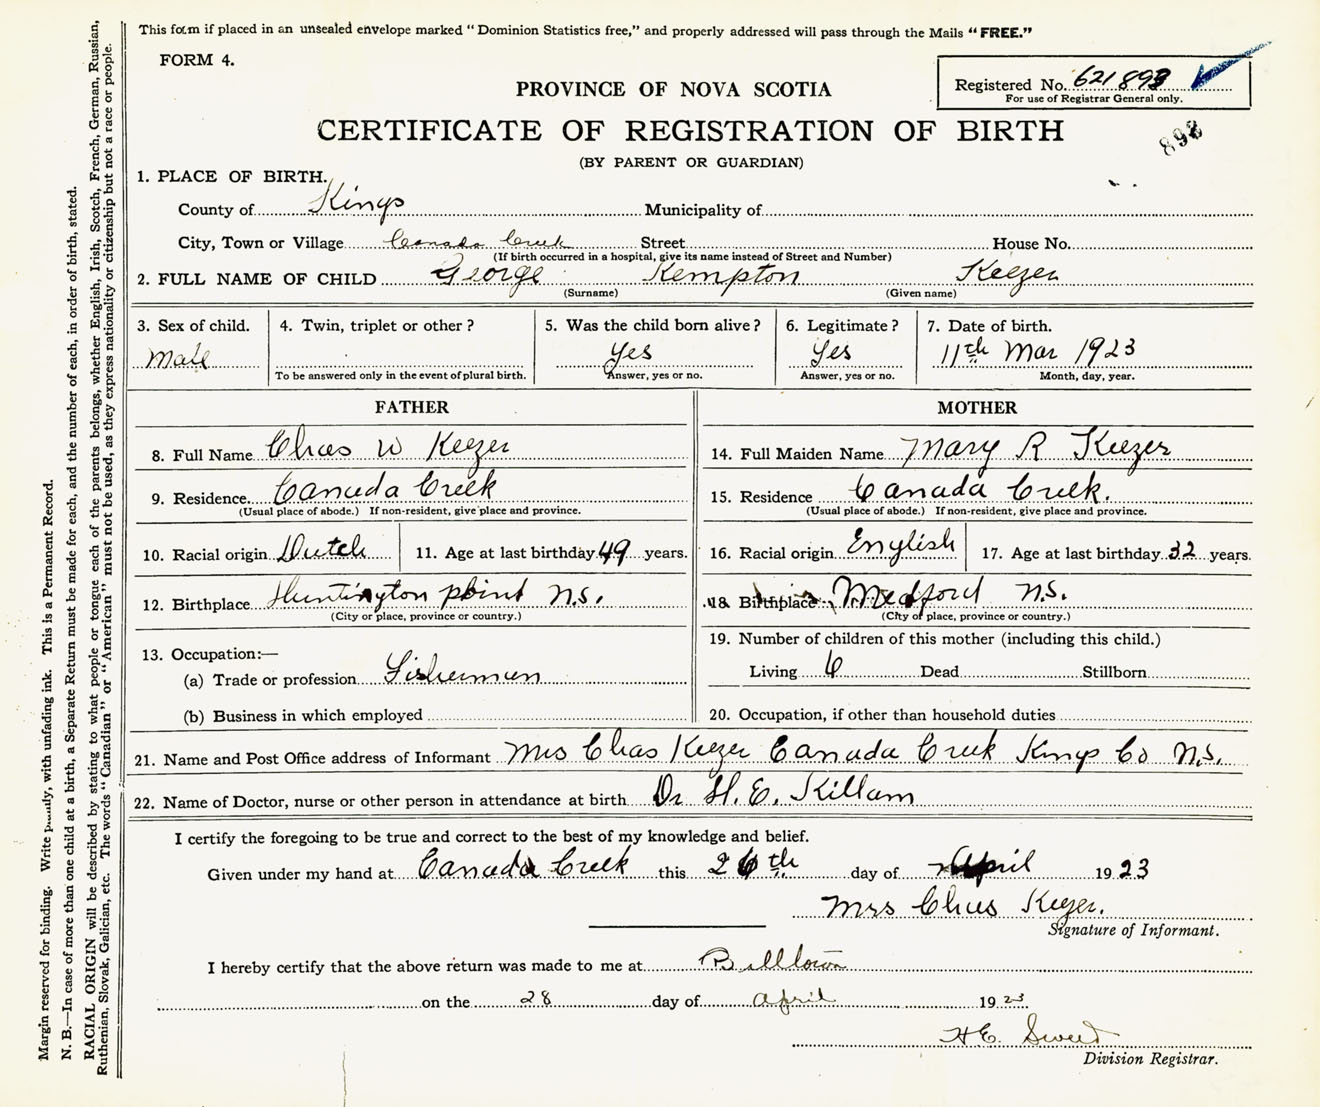 This form if placed in an unsealed envelope marked "Dominion Statistics free," and properly addressed will pass through the Mails "FREE."
FORM 4.
Registered No. 621893
For use of Registrar General only.
PROVINCE OF NOVA SCOTIA
CERTIFICATE OF REGISTRATION OF BIRTH
898
(BY PARENT OR GUARDIAN)
1. PLACE OF BIRTH.
County of Kings Municipality of
City, Town or Village Canada Creek Street House No.
(If birth occurred in a hospital, give its name instead of Street and Number)
2. FULL NAME OF CHILD George Kempton Keezer
(Surname) (Given name)
3. Sex of child. 4. Twin, triplet or other? 5. Was the child born alive? 6. Legitimate? 7. Date of birth.
Male Yes Yes 11th Mar 1923
To be answered only in the event of plural birth. Answer, yes or no. Answer, yes or no. Month, day, year.
FATHER MOTHER
8. Full Name Chas W Keezer 14. Full Maiden Name Mary R Keezer
9. Residence Canada Creek 15. Residence Canada Creek.
(Usual place of abode.) If non-resident, give place and province. (Usual place of abode.) If non-resident, give place and province.
10. Racial origin Dutch 11. Age at last birthday 49 years. 16. Racial origin English 17. Age at last birthday 32 years.
12. Birthplace Huntington point N.S. 18. Birthplace Medford N.S.
(City or place, province or country.) (City or place, province or country.)
13. Occupation:— 19. Number of children of this mother (including this child.)
(a) Trade or profession Fisherman Living 6 Dead Stillborn
(b) Business in which employed 20. Occupation, if other than household duties
21. Name and Post Office address of Informant Mrs Chas Keezer Canada Creek Kings Co N.S.
22. Name of Doctor, nurse or other person in attendance at birth Dr H. E. Killam
I certify the foregoing to be true and correct to the best of my knowledge and belief.
Given under my hand at Canada Creek this 26th day of April 1923
Mrs Chas Keezer.
Signature of Informant.
I hereby certify that the above return was made to me at Billtown
on the 28 day of April 1923
H E.
Division Registrar.
Margin reserved for binding. Write with unfading ink. This is a Permanent Record.
N. B.—In case of more than one child at a birth, a Separate Return must be made for each, and the number of each, in order of birth, stated.
RACIAL ORIGIN will be described by stating to what people or tongue each of the parents belongs, whether English, Irish, Scotch, French, German, Russian,
Ruthenian, Slovak, Galician, etc. The words "Canadian" or "American" must not be used, as they express nationality or citizenship but not a race or people.